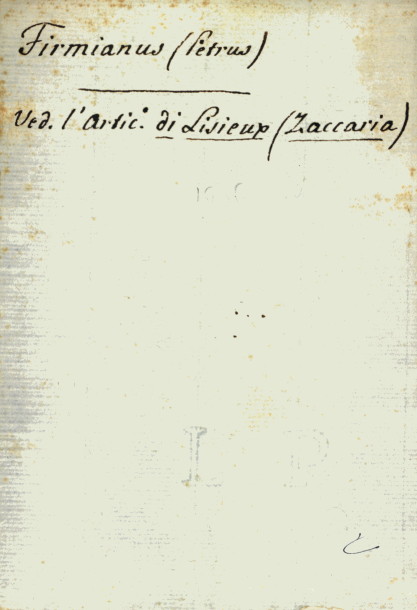 Firmianus (Petrus)
Ved. l'Artic.º di Lisieux (Zaccaria)
L P